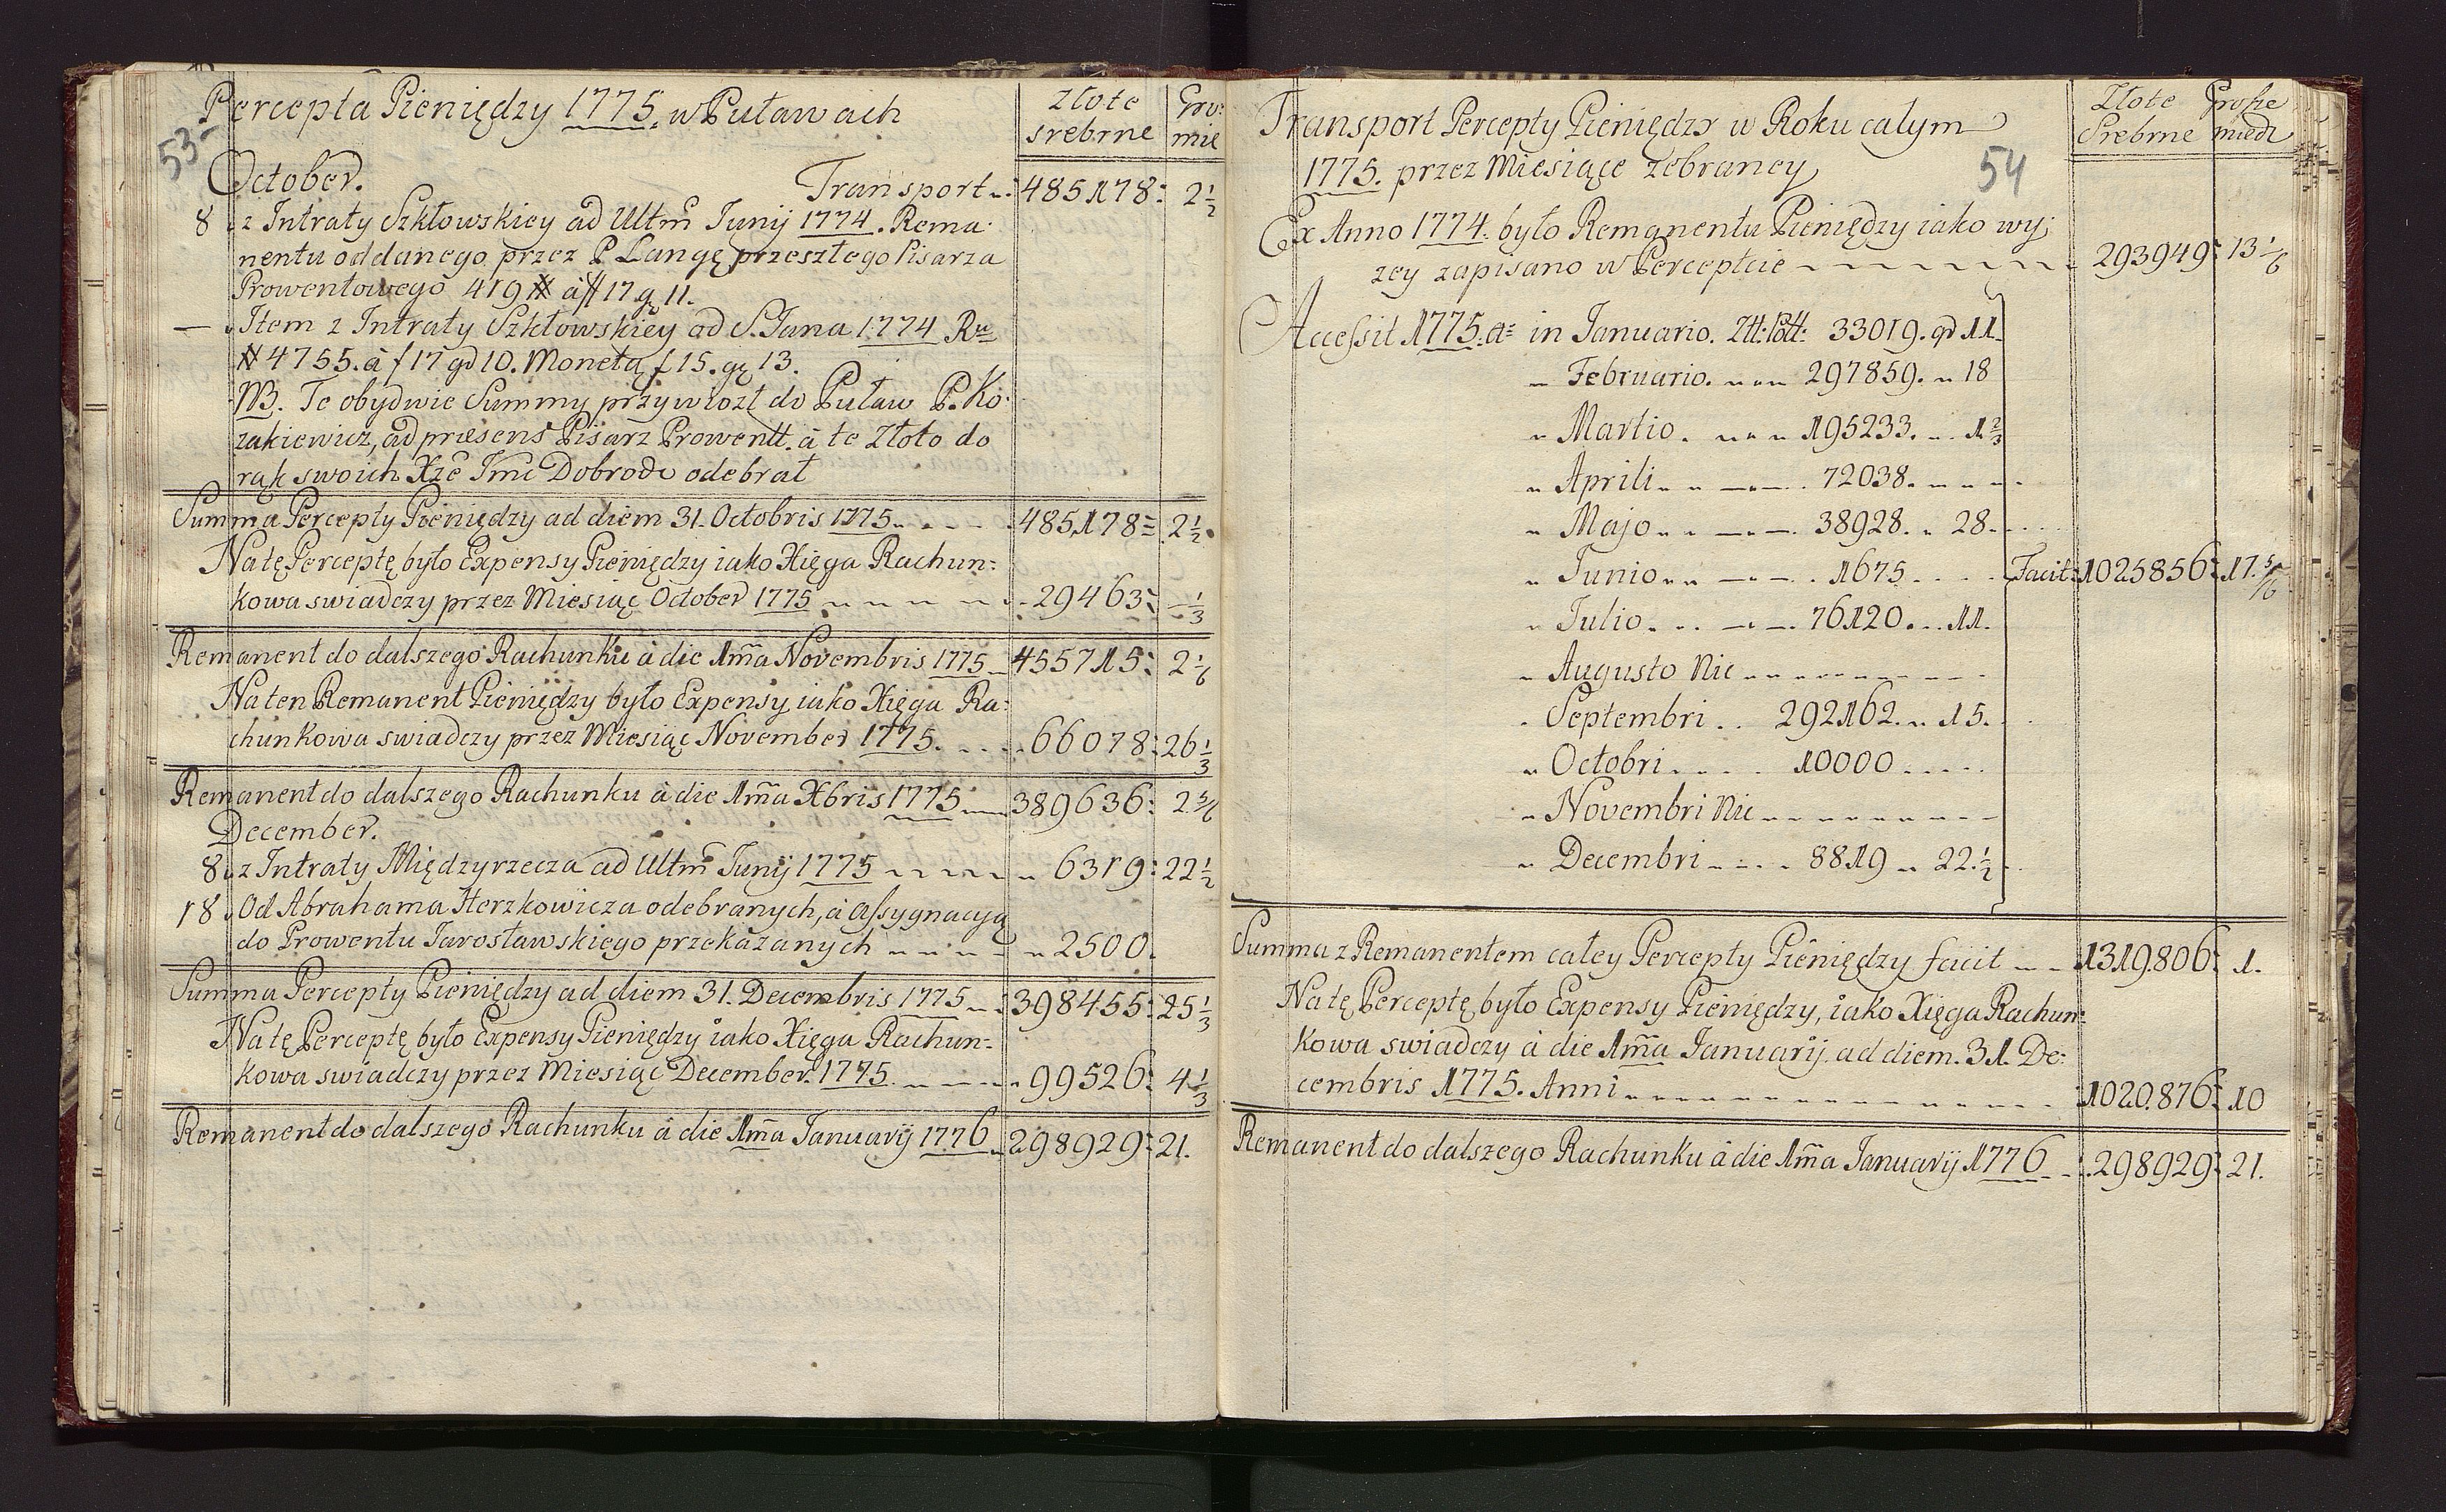 Percepta Pieniędzy 1775. w Puławach
Złote srebrne
Gro: mie
53-
October.
Transport 485178: 2 1/2
8 z Intraty Szkłowskiey ad Ultm Junij 1774. Rema-
nentu oddanego przez P Langę przeszłego Pisarza
Prowentowego 419 # à f 17 g 11.
— Item z Intraty Szkłowskiey ad S. Jana 1774 Ru
# 4755. à f 17 gr 10. Monetą f 15. gr 13.
NB. Te obydwie Summy przywiozł do Puław P. Ko-
zakiewicz, ad præsens Pisarz Prowentt. à te Złoto do
rąk swoich Xże Jmć Dobrodz odebrał
Summa Percepty Pieniędzy ad diem 31. Octobris 1775 485178 2 1/2
Na tę Perceptę było Expensy Pieniędzy iako Xięga Rachun-
kowa swiadczy przez Miesiąc October 1775 29463: — 1/3
Remanent do dalszego Rachunku à die 1ma Novembris 1775 455715: 2 1/6
Na ten Remanent Pieniędzy było Expensy iako Xięga Ra-
chunkowa swiadczy przez Miesiąc November 1775. 66078: 26 1/3
Remanent do dalszego Rachunku à die 1ma Xbris 1775 389636: 2 5/6
December.
8 z Intraty Międzyrzecza ad Ultm Junij 1775 6319: 22 1/2
18 Od Abrahama Herzkowicza odebranych, à assygnacyą
do Prowentu Jarosławskiego przekazanych 2500.
Summa Percepty Pieniędzy ad diem 31. Decembris 1775 398455: 25 1/3
Na tę Perceptę było Expensy Pieniędzy iako Xięga Rachun-
kowa swiadczy przez Miesiąc December. 1775 99526: 4 1/3
Remanent do dalszego Rachunku à die 1ma Januarij 1776 298929: 21.
Transport Percepty Pieniędzy w Roku całym
Złote Srebrne
grosze miedz
1775. przez Miesiące zebraney
54
Ex Anno 1774. było Remanentu Pieniędzy iako wy-
zey zapisano w Perceptcie 293949: 13 1/6
Accessit 1775. a= in Januario. Złł: Poll: 33019. gr 11.
" Februario. 297859. " 18
" Martio. 195233. 1 2/3
" Aprili 72038.
" Majo 38928. " 28.
" Junio 1675. Facit: 1025856: 17. 5/6
" Julio. 76120. 11.
" Augusto Nic
" Septembri. 292162. " 15.
" Octobri 10000
" Novembri Nic
" Decembri 8819 " 22. 1/2
Summa z Remanentem całey Percepty Pieniędzy facit 1319.806: 1.
Na tę Perceptę było Expensy Pieniędzy, iako Xięga Rachun-
kowa swiadczy à die 1ma Januarij. ad diem. 31. De-
cembris 1775. Anni 1020.876: 10
Remanent do dalszego Rachunku à die 1ma Januarij 1776 298929: 21.